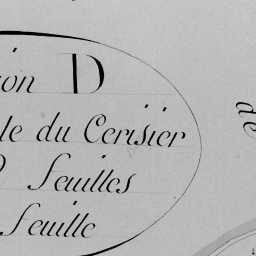 ion D
le du Cerisier
feuilles
feuille